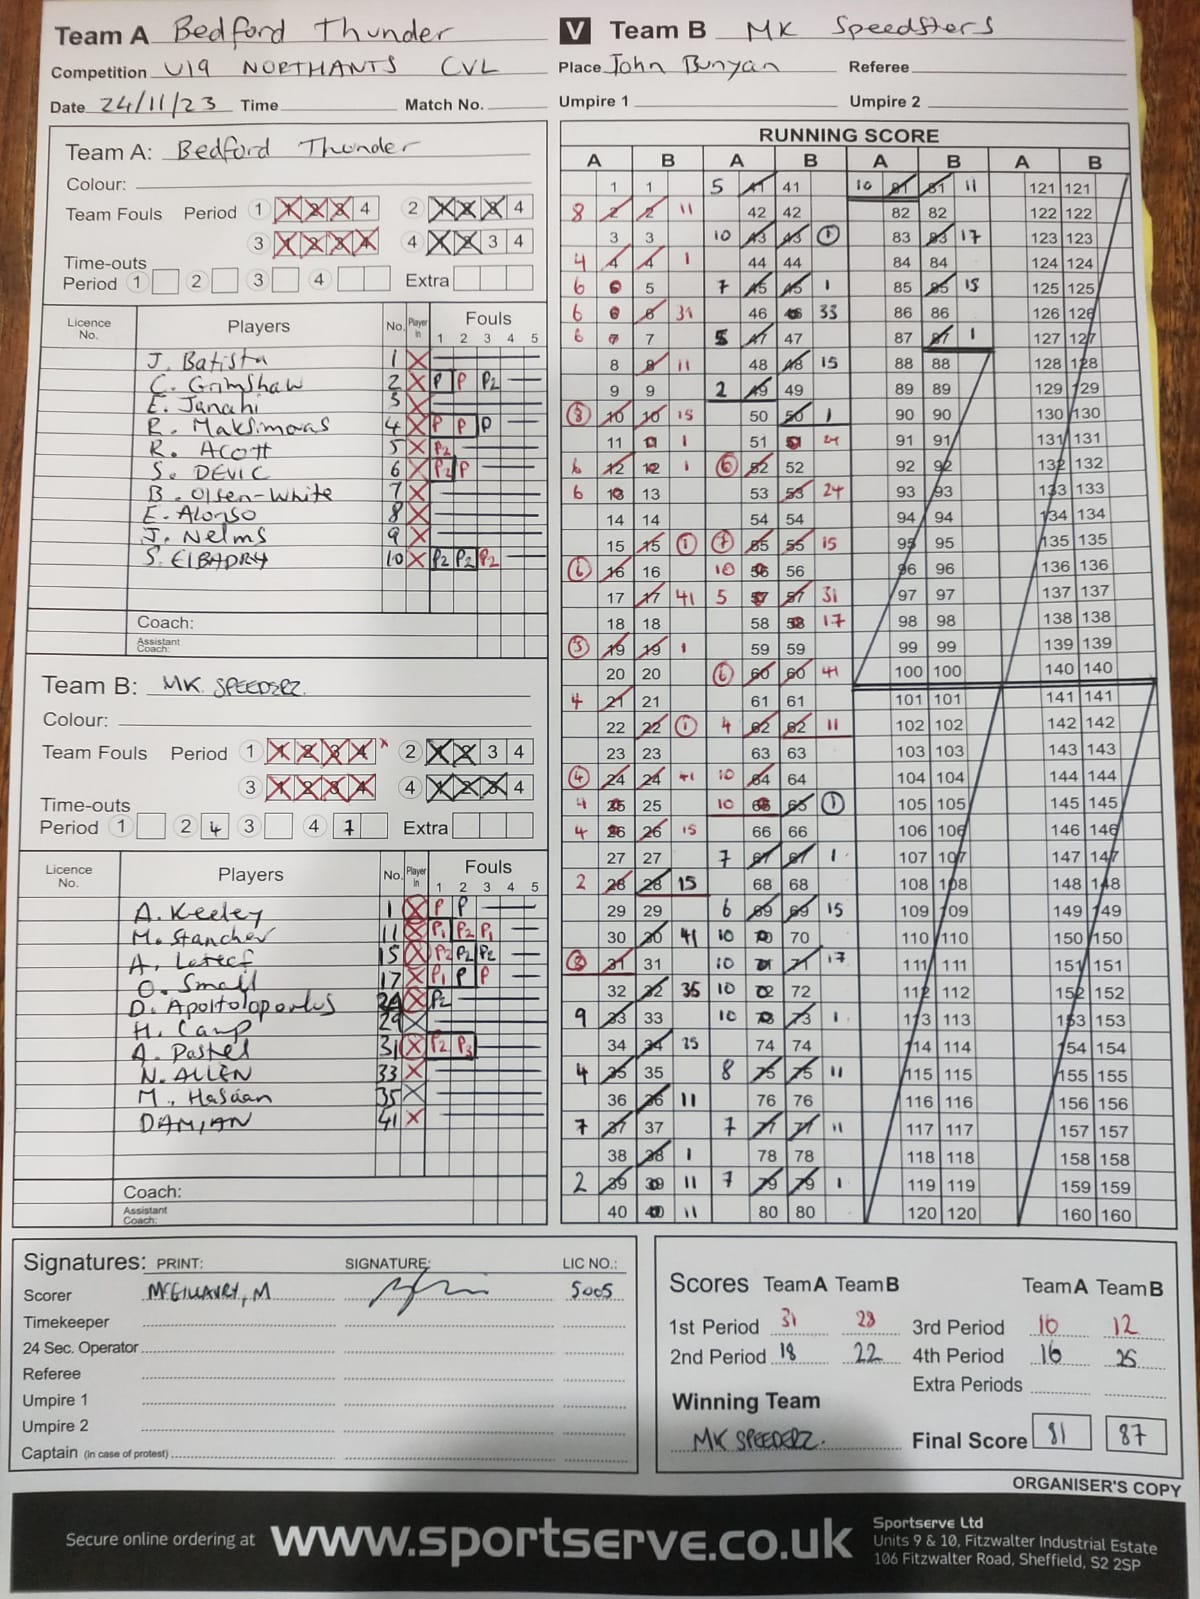 Team A Bedford Thunder V Team B MK Speedsters
Competition U19 NORTHANTS CVL Place John Bunyan Referee
Date 24/11/23 Time Match No. Umpire 1 Umpire 2
Team A: Bedford Thunder
Colour:
Team Fouls Period 1 1 2 3 4 2 1 2 3 4
3 1 2 3 4 4 1 2 3 4
Time-outs
Period 1 2 3 4 Extra
Licence No. Players No. Player in Fouls
1 2 3 4 5
J. Batista 1
C. Grimshaw 2 P P P2
E. Janahi 3
R. Maksimovas 4 P P P
R. Acott 5 P2
S. DEVIC 6 P2 P
B. Olsen-White 7
E. Alonso 8
J. Nelms 9
S. ElBADRY 10 P2 P2 P2
Coach:
Assistant Coach:
Team B: MK SPEEDERZ
Colour:
Team Fouls Period 1 1 2 3 4 2 1 2 3 4
3 1 2 3 4 4 1 2 3 4
Time-outs
Period 1 2 4 3 4 7 Extra
Licence No. Players No. Player in Fouls
1 2 3 4 5
A. Keeley 1 P P
M. Stanchev 11 P1 P2 P1
A. 15 P2 P2 P2
O. Small 17 P1 P P
D. P2
H. Camp 29
A. 31 P2 P3
N. ALLEN 33
M. Hasaan 35
DAMIAN 41
Coach:
Assistant Coach:
RUNNING SCORE
A B A B A B A B
1 1 5 41 41 10 81 81 11 121 121
8 2 2 11 42 42 82 82 122 122
3 3 10 43 43 1 83 83 17 123 123
4 4 4 1 44 44 84 84 124 124
6 5 5 7 45 45 1 85 85 15 125 125
6 6 6 31 46 46 33 86 86 126 126
6 7 7 5 47 47 87 87 1 127 127
8 8 11 48 48 15 88 88 128 128
9 9 2 49 49 89 89 129 129
8 10 10 15 50 50 1 90 90 130 130
11 11 1 51 51 24 91 91 131 131
6 12 12 1 6 52 52 92 92 132 132
6 13 13 53 53 24 93 93 133 133
14 14 54 54 94 94 134 134
15 15 1 7 55 55 15 95 95 135 135
6 16 16 10 56 56 96 96 136 136
17 17 41 5 57 57 31 97 97 137 137
18 18 58 58 17 98 98 138 138
3 19 19 1 59 59 99 99 139 139
20 20 6 60 60 41 100 100 140 140
4 21 21 61 61 101 101 141 141
22 22 1 4 62 62 11 102 102 142 142
23 23 63 63 103 103 143 143
4 24 24 41 10 64 64 104 104 144 144
4 25 25 10 65 65 1 105 105 145 145
4 26 26 15 66 66 106 106 146 146
27 27 7 67 67 1 107 107 147 147
2 28 28 15 68 68 108 108 148 148
29 29 6 69 69 15 109 109 149 149
30 30 41 10 70 70 110 110 150 150
3 31 31 10 71 71 17 111 111 151 151
32 32 35 10 72 72 112 112 152 152
9 33 33 10 73 73 1 113 113 153 153
34 34 35 74 74 114 114 154 154
4 35 35 8 75 75 11 115 115 155 155
36 36 11 76 76 116 116 156 156
7 37 37 7 77 77 11 117 117 157 157
38 38 1 78 78 118 118 158 158
2 39 39 11 7 79 79 1 119 119 159 159
40 40 11 80 80 120 120 160 160
Signatures: PRINT: SIGNATURE: LIC NO.:
Scorer MCGILLAVRY, M 5005
Timekeeper
24 Sec. Operator
Referee
Umpire 1
Umpire 2
Captain (in case of protest)
Scores Team A Team B Team A Team B
1st Period 31 28 3rd Period 16 12
2nd Period 18 22 4th Period 16 25
Extra Periods
Winning Team
MK SPEEDERZ. Final Score 81 87
ORGANISER'S COPY
Secure online ordering at www.sportserve.co.uk
Sportserve Ltd
Units 9 & 10, Fitzwalter Industrial Estate
106 Fitzwalter Road, Sheffield, S2 2SP